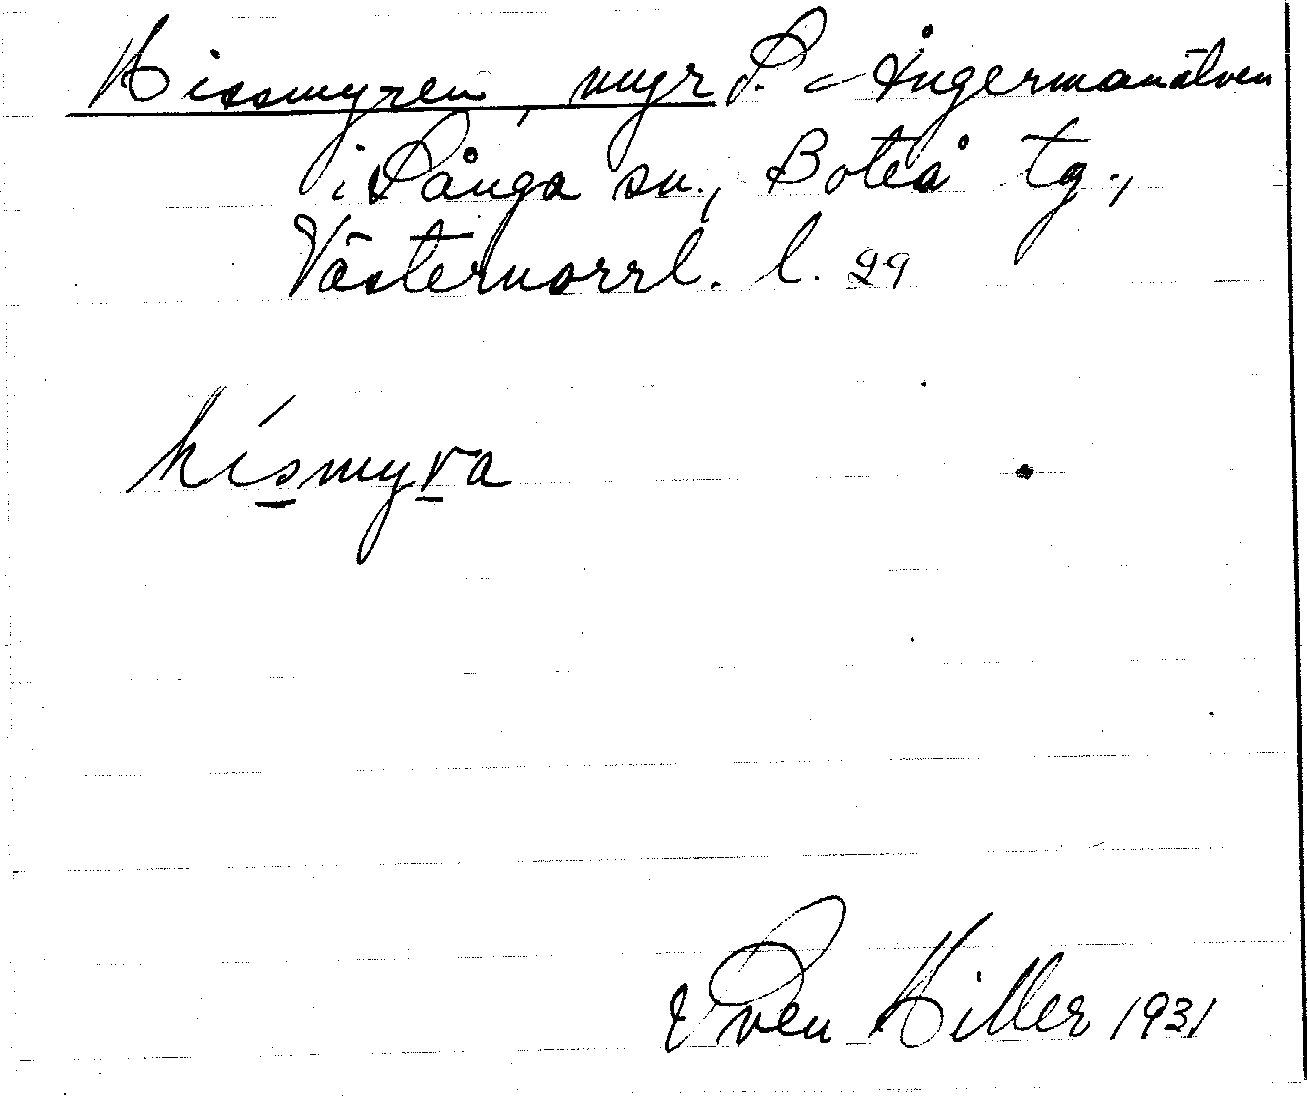 Hissmyren, myr S. Ångermanälven
i Sånga sn., Boteå tg.,
Västernorrl. l. 29
hísmyra
Sven Hiller 1931